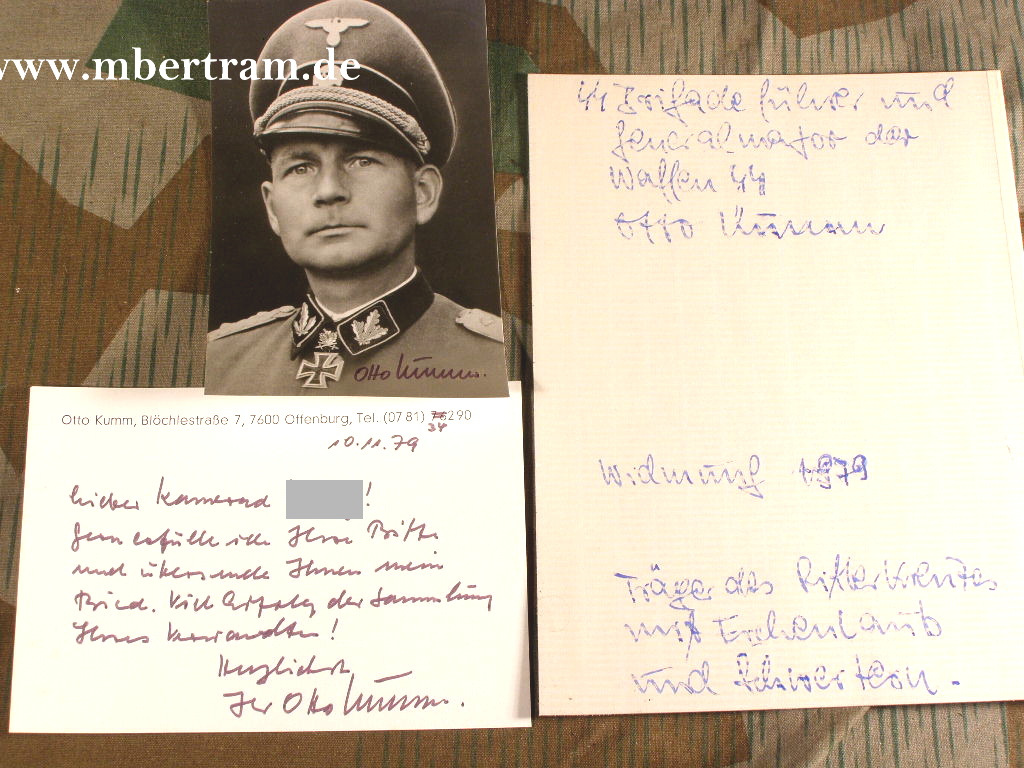 www.mbertram.de
Otto Kumm.
Otto Kumm, Blöchlestraße 7, 7600 Offenburg, Tel. (07 81) 75290
34
10.11.79
Lieber Kamerad !
Gern erfülle ich Ihre Bitte
und übersende Ihnen mein
Bild. Viel Erfolg der Sammlung
Ihres Verwandten!
Herzlichst
Ihr Otto Kumm.
SS Brigadeführer und
Generalmajor der
Waffen SS
Otto Kumm
Widmung 1979
Träger des Ritterkreutes
mit Eichenlaub
und Schwertern.